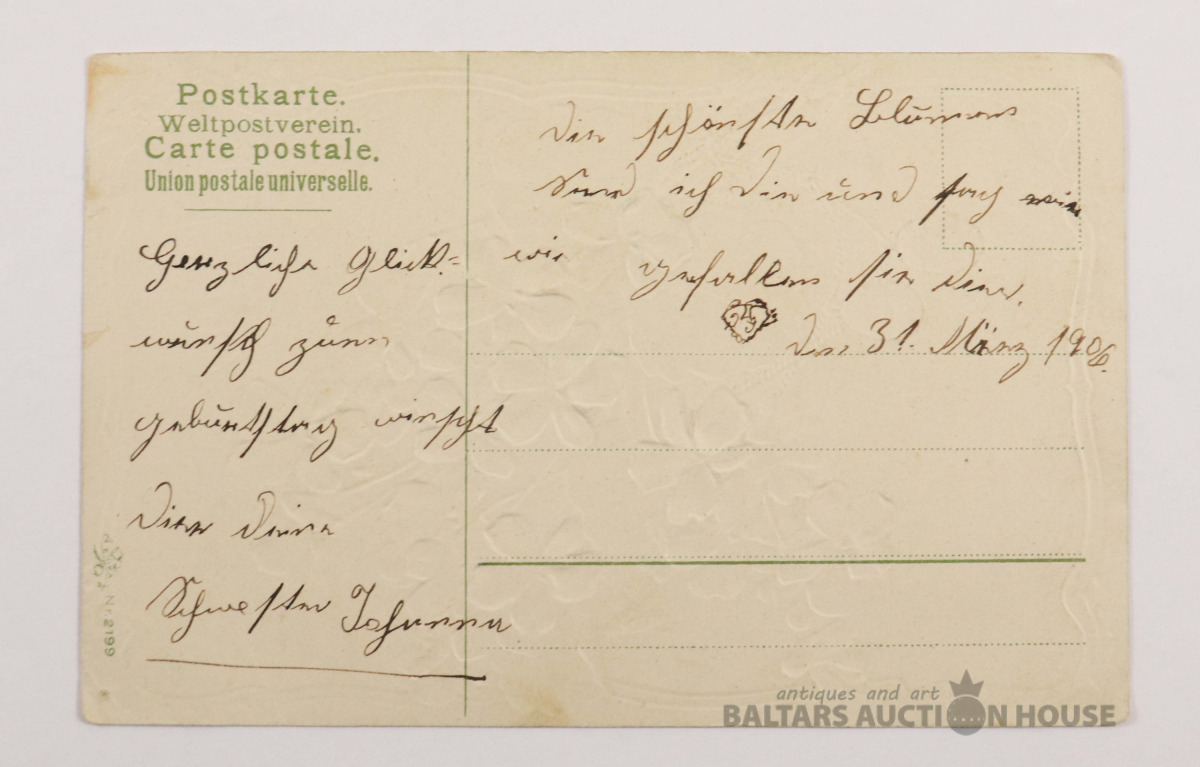 Postkarte.
Weltpostverein.
Carte postale.
Union postale universelle.
Herzliche Glick=
wunsch zum
geburtstag winscht
Dier deine
Schwester Johanna
Die schönste Blumen
Send ich Dier und sag mir
wie gefallen sie Dier.
den 31. März 1906.
Nr. 2199
antiques and art
BALTARS AUCTION HOUSE